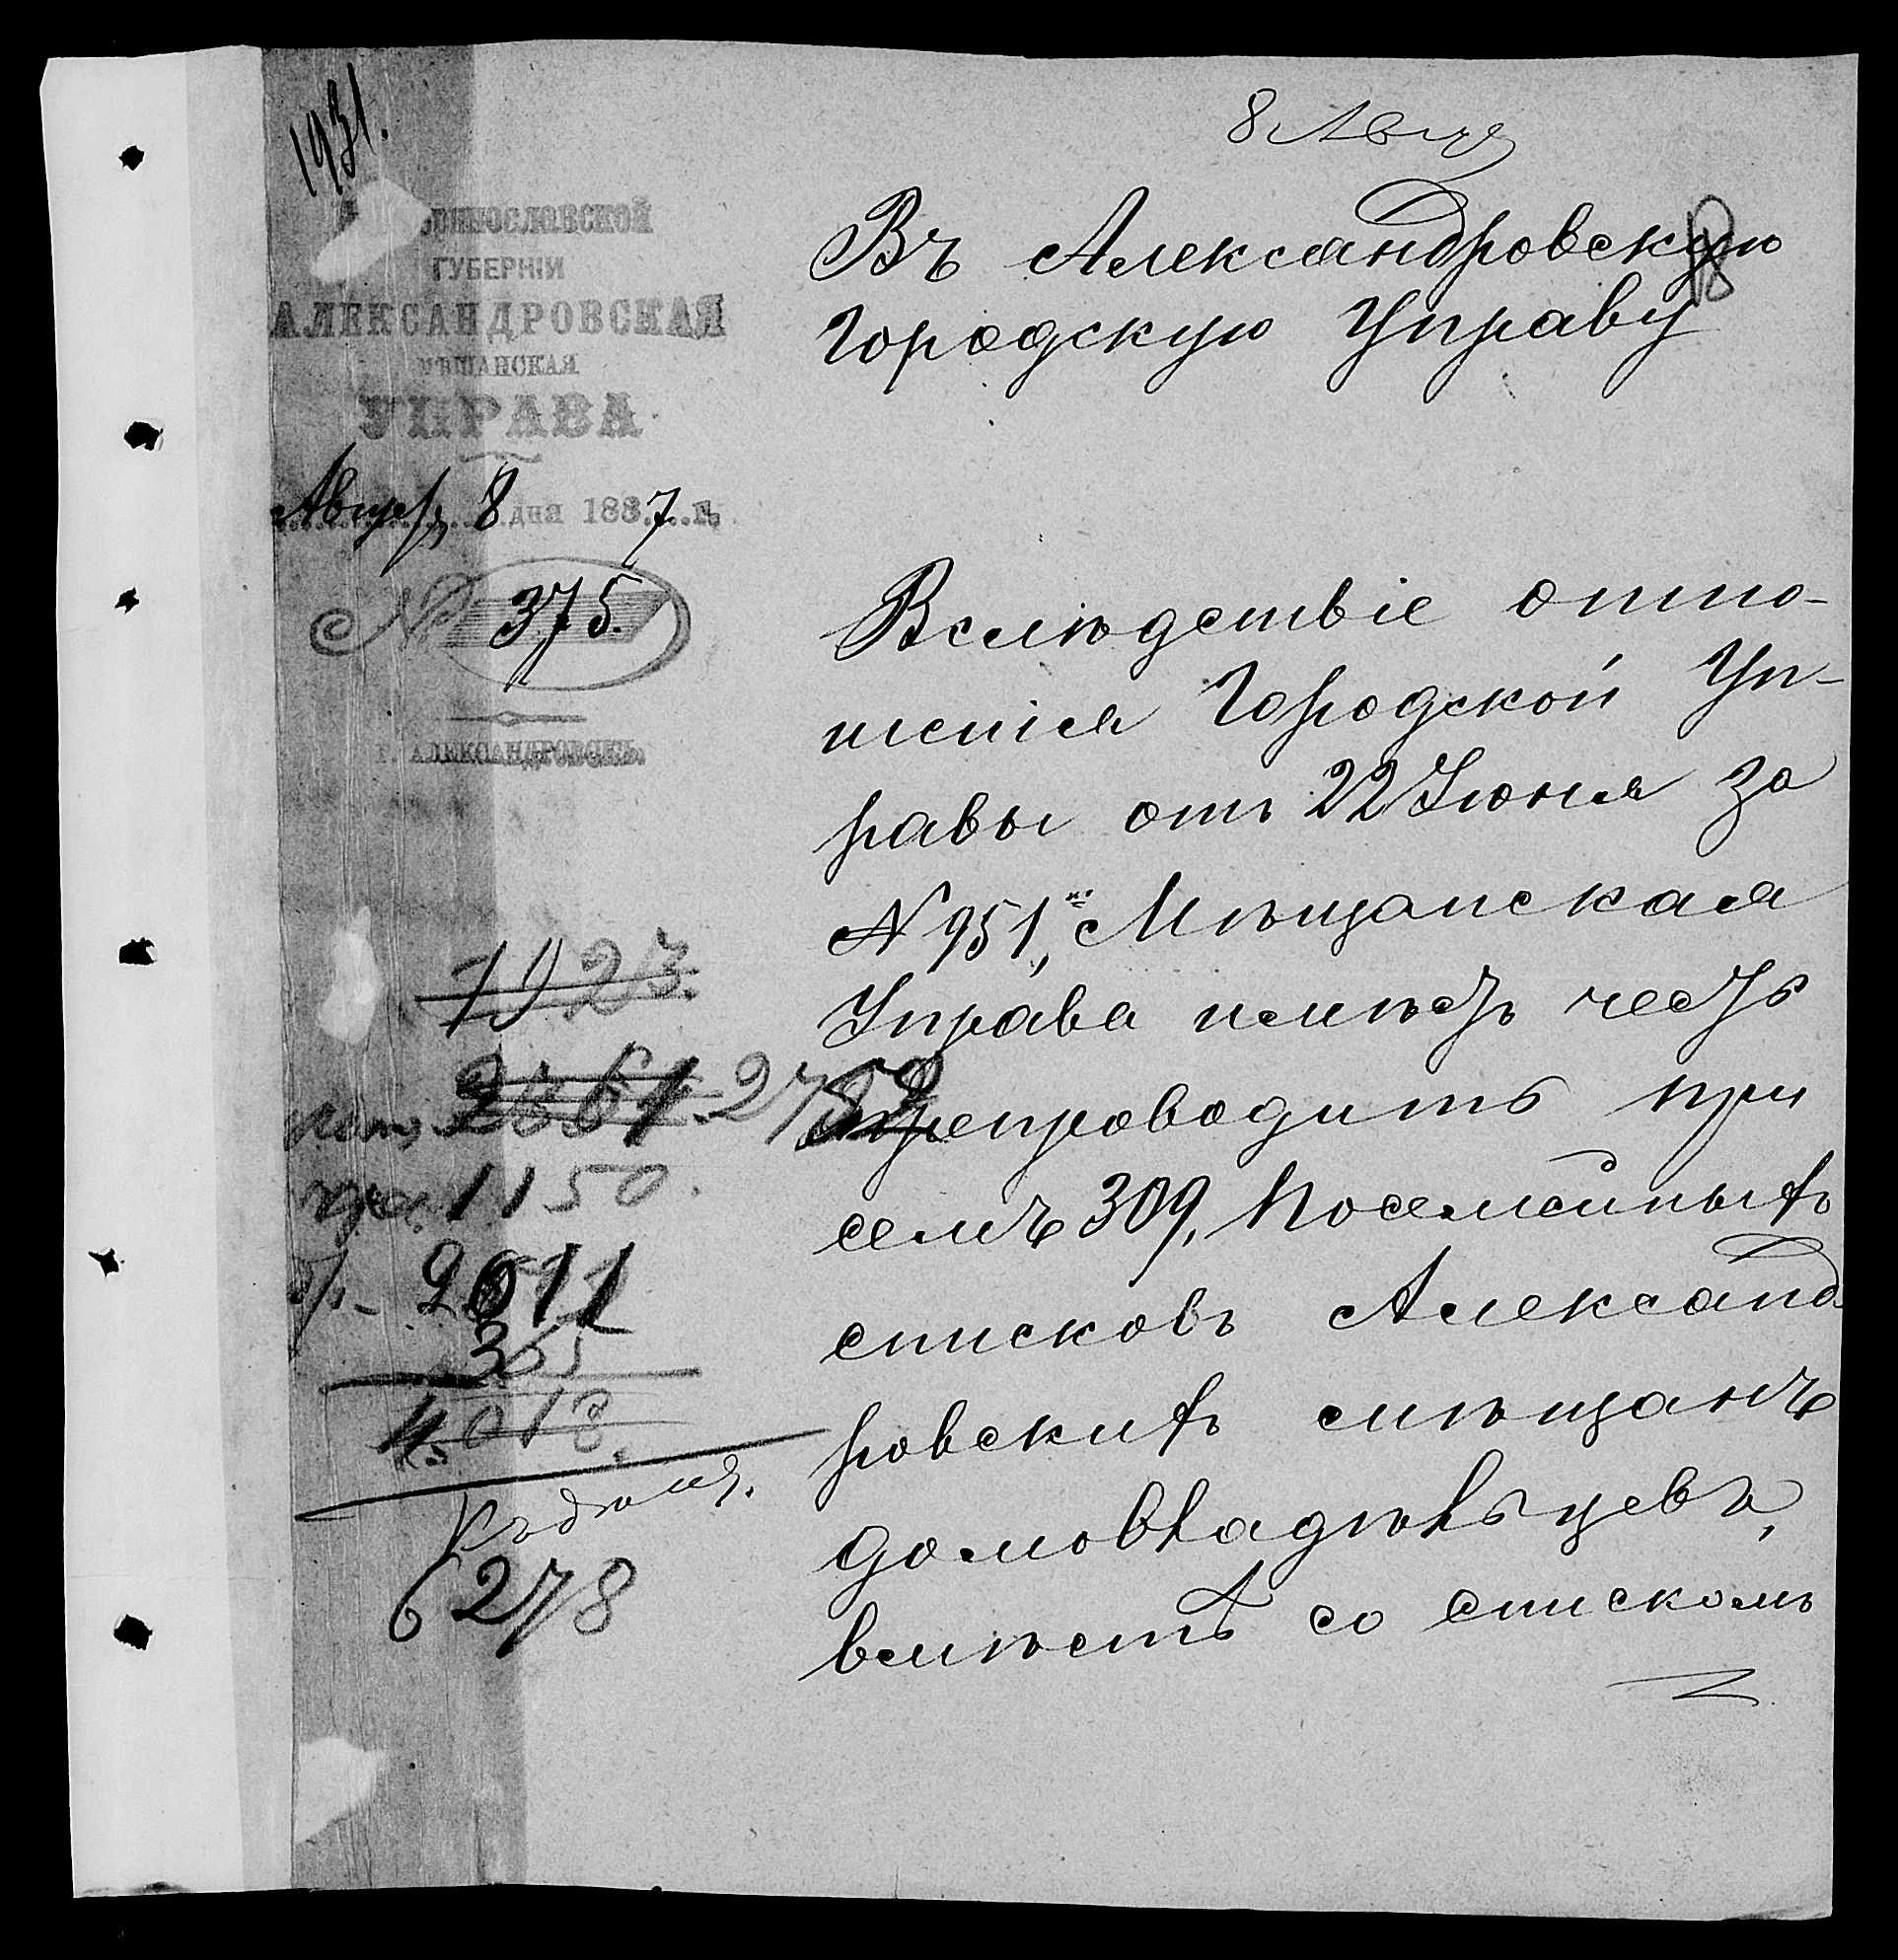 1931.
8 Авгус
ГУБЕРНІИ
АЛЕКСАНДРОВСКАЯ
МѢЩАНСКАЯ
УПРАВА
8 дня 1887 г.
№ 375.
Г. АЛЕКСАНДРОВСКЪ
Въ Александровскую
Городскую Управу
Вслѣдствіе отно-
шенія Городской Уп-
равы отъ 22 Іюня за
№ 951, Мѣщанская
Управа имѣетъ честь
препроводить при
семъ 309, посемейныхъ
списковъ Александ
ровскихъ мѣщанъ
домовладѣльцевъ,
вмѣстѣ со спискомъ
1923.
1150.
2011
365
4018.
6278